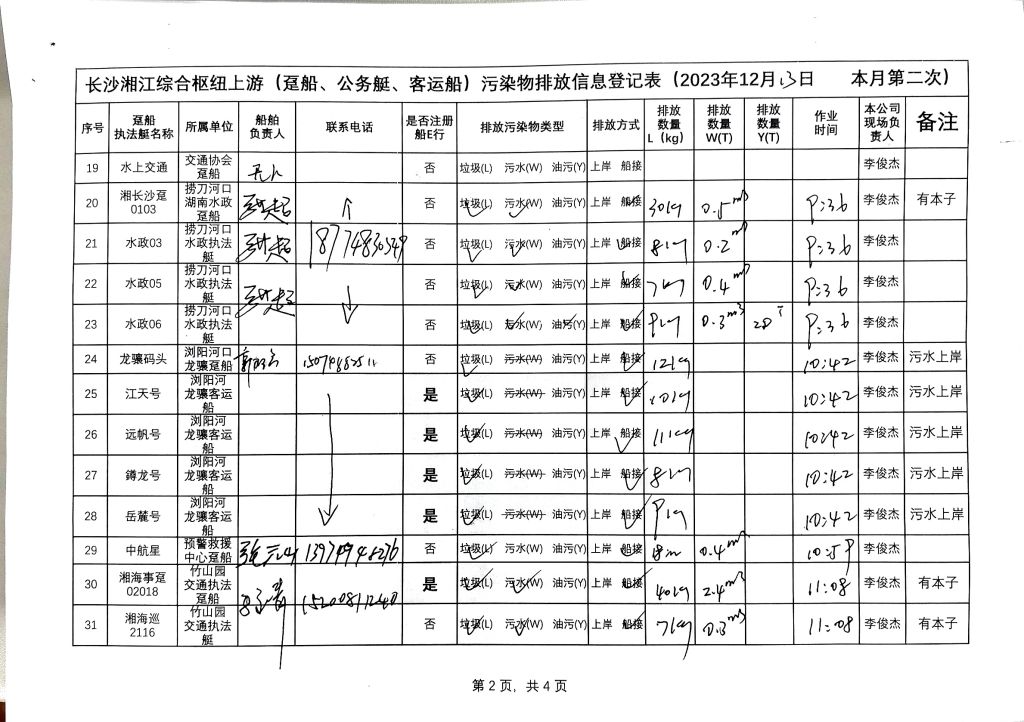 长沙湘江综合枢纽上游（趸船、公务艇、客运船）污染物排放信息登记表（2023年12月13日 本月第二次）
序号 趸船执法艇名称 所属单位 船舶负责人 联系电话 是否注册船E行 排放污染物类型 排放方式 排放数量L（kg） 排放数量W(T) 排放数量Y(T) 作业时间 本公司现场负责人 备注
19 水上交通 交通协会趸船 无人 否 垃圾(L) 污水(W) 油污(Y) 上岸 船接 李俊杰
20 湘长沙趸0103 捞刀河口湖南水政趸船 否 垃圾(L) 污水(W) 油污(Y) 上岸 船接 30kg 0.5m3 9:36 李俊杰 有本子
21 水政03 捞刀河口水政执法艇 否 垃圾(L) 污水(W) 油污(Y) 上岸 船接 8kg 0.2m3 9:36 李俊杰
22 水政05 捞刀河口水政执法艇 否 垃圾(L) 污水(W) 油污(Y) 上岸 船接 7kg 0.4m3 9:36 李俊杰
23 水政06 捞刀河口水政执法艇 否 垃圾(L) 污水(W) 油污(Y) 上岸 船接 9kg 0.3m3 9:36 李俊杰
24 龙骧码头 浏阳河口龙骧趸船 否 垃圾(L) 污水(W) 油污(Y) 上岸 船接 12kg 10:42 李俊杰 污水上岸
25 江天号 浏阳河龙骧客运船 是 垃圾(L) 污水(W) 油污(Y) 上岸 船接 10kg 10:42 李俊杰 污水上岸
26 远帆号 浏阳河龙骧客运船 是 垃圾(L) 污水(W) 油污(Y) 上岸 船接 11kg 10:42 李俊杰 污水上岸
27 鐏龙号 浏阳河龙骧客运船 是 垃圾(L) 污水(W) 油污(Y) 上岸 船接 8kg 10:42 李俊杰 污水上岸
28 岳麓号 浏阳河龙骧客运船 是 垃圾(L) 污水(W) 油污(Y) 上岸 船接 9kg 10:42 李俊杰 污水上岸
29 中航星 预警救援中心趸船 否 垃圾(L) 污水(W) 油污(Y) 上岸 船接 0.4m3 10:59 李俊杰
30 湘海事趸02018 竹山园交通执法趸船 15200811240 是 垃圾(L) 污水(W) 油污(Y) 上岸 船接 40kg 2.4m3 11:08 李俊杰 有本子
31 湘海巡2116 竹山园交通执法艇 否 垃圾(L) 污水(W) 油污(Y) 上岸 船接 7kg 0.3m3 11:08 李俊杰 有本子
第 2 页，共 4 页